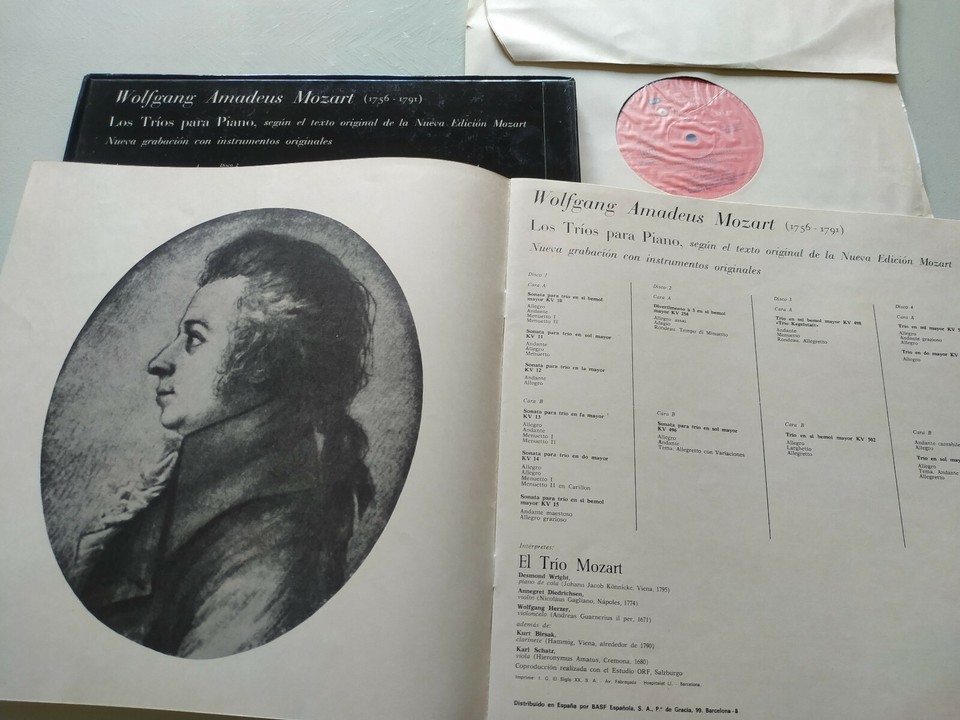 Wolfgang Amadeus Mozart (1756-1791)
Los Tríos para Piano, según el texto original de la Nueva Edición Mozart
Nueva grabación con instrumentos originales
Disco 2
Wolfgang Amadeus Mozart (1756-1791)
Los Tríos para Piano, según el texto original de la Nueva Edición Mozart
Nueva grabación con instrumentos originales
Disco 1
Cara A
Sonata para trío en si bemol
mayor KV 10
Allegro
Andante
Menuetto I
Menuetto II
Sonata para trío en sol mayor
KV 11
Andante
Allegro
Menuetto
Sonata para trío en la mayor
KV 12
Andante
Allegro
Cara B
Sonata para trío en fa mayor
KV 13
Allegro
Andante
Menuetto I
Menuetto II
Sonata para trío en do mayor
KV 14
Allegro
Allegro
Menuetto I
Menuetto II en Carillon
Sonata para trío en si bemol
mayor KV 15
Andante maestoso
Allegro grazioso
Disco 2
Cara A
Divertimento a 3 en si bemol
mayor KV 254
Allegro assai
Adagio
Rondeau. Tempo di Minuetto
Cara B
Sonata para trío en sol mayor
KV 496
Allegro
Andante
Tema. Allegretto con Variaciones
Disco 3
Cara A
Trío en mi bemol mayor KV 498
«Trío Kegelstatt»
Andante
Menuetto
Rondeau. Allegretto
Cara B
Trío en si bemol mayor KV 502
Allegro
Larghetto
Allegretto
Disco 4
Cara A
Trío en mi mayor KV
Allegro
Andante grazioso
Allegro
Trío en do mayor KV
Allegro
Cara B
Andante cantabile
Allegro
Trío en sol
Allegro
Tema. Andante
Allegretto
Intérpretes:
El Trío Mozart
Desmond Wright,
piano de cola (Johann Jacob Könnicke, Viena, 1795)
Annegret Diedrichsen,
violín (Nicolaus Gagliano, Nápoles, 1774)
Wolfgang Herzer,
violoncelo (Andreas Guarnerius il per, 1671)
además de:
Kurt Birsak,
clarinete (Hammig, Viena, alrededor de 1790)
Karl Schatz,
viola (Hieronymus Amatus, Cremona, 1680)
Coproducción realizada con el Estudio ORF, Salzburgo
Imprime: I. G. El Siglo XX, S. A. - Av. Fabregada - Hospitalet Ll. Barcelona
Distribuido en España por BASF Española, S. A., P.º de Gracia, 99. Barcelona-8